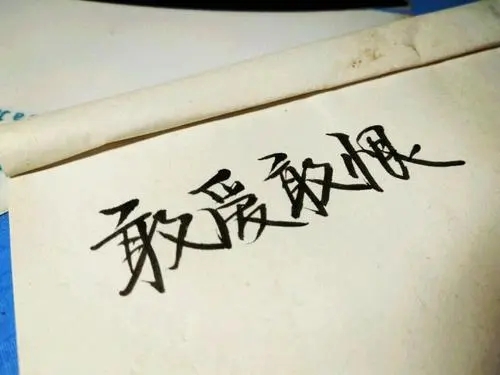 敢爱敢恨